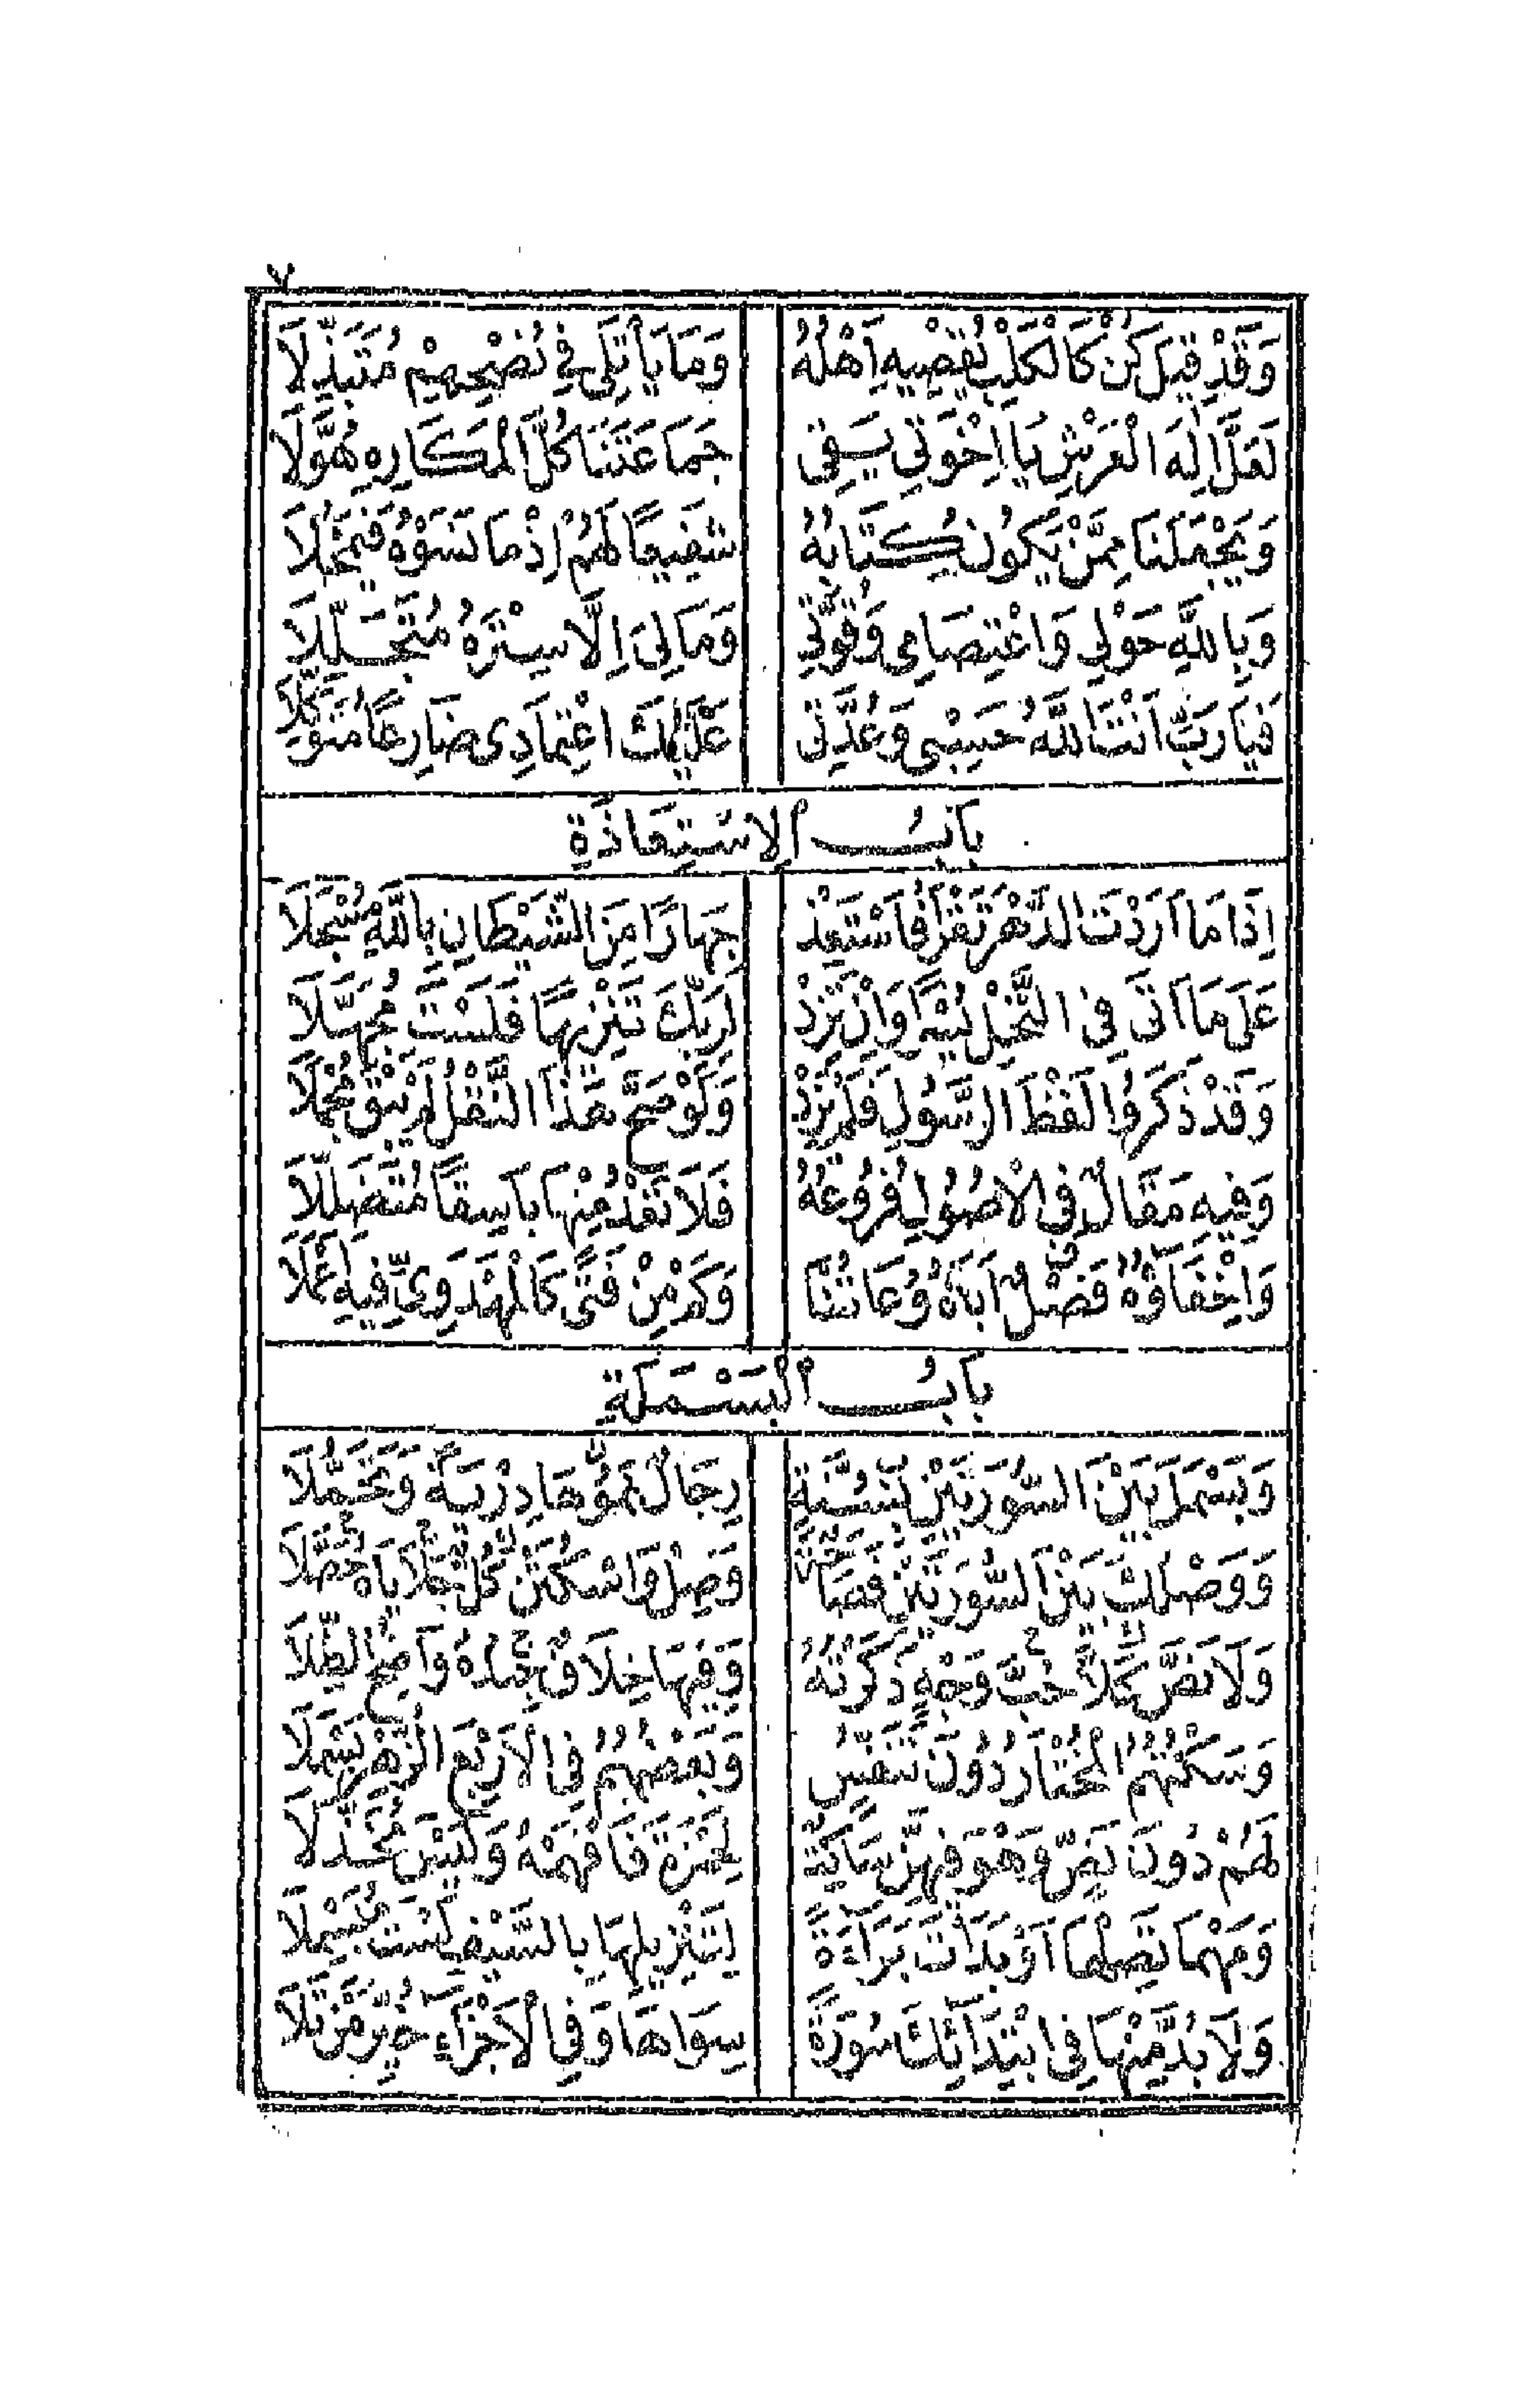 ٧
وَقَدْ قِيلَ كُنْ كَالْكَلْبِ يُقْصِيهِ اَهْلُهُ وَمَا يَأْتَلِى فِى نُصْحِهِمْ مُتَبَذِّلَا
لَعَلَّ اِلٰهَ الْعَرْشِ يَا اِخْوَتِى يَقِى جَمَاعَتَنَا كُلَّ الْمَكَارِهِ هُوَّلَا
وَيَجْعَلَنَا مِمَّنْ يَكُونُ كِتَابُهُ شَفِيعًا لَهُمْ اِذْ مَا نَسَوْهُ فَيَمْحُلَا
وَبِاللَّهِ حَوْلِى وَاعْتِصَامِى وَقُوَّتِى وَمَالِىَ اِلَّا سِتْرُهُ مُتَجَلِّلَا
فَيَا رَبِّ اَنْتَ اللَّهُ حَسْبِى وَعُدَّتِى عَلَيْكَ اعْتِمَادِى ضَارِعًا مُتَوَكِّلَا
بَابُ الِاسْتِعَاذَةِ
اِذَا مَا اَرَدْتَ الدَّهْرَ تَقْرَأُ فَاسْتَعِذْ جِهَارًا مِنَ الشَّيْطَانِ بِاللَّهِ مُسْجَلَا
عَلَى مَا اَتَى فِى النَّحْلِ يُسْرًا وَاِنْ تَزِدْ لِرَبِّكَ تَنْزِيهًا فَلَسْتَ مُجَهَّلَا
وَقَدْ ذَكَرُوا لَفْظَ الرَّسُولِ فَلَمْ يَزِدْ وَلَوْ صَحَّ هٰذَا النَّقْلُ لَمْ يُبْقِ مُجْمَلَا
وَفِيهِ مَقَالٌ فِى الْاُصُولِ فُرُوعُهُ فَلَا تَعْدُ مِنْهَا بَاسِقًا وَمُظَلِّلَا
وَاِخْفَاؤُهُ فَصْلٌ اَبَاهُ وُعَاتُنَا وَكَمْ مِنْ فَتًى كَالْمَهْدَوِى فِيهِ اَعْمَلَا
بَابُ الْبَسْمَلَةِ
وَبَسْمَلَ بَيْنَ السُّورَتَيْنِ بِسُنَّةٍ رِجَالٌ نَمَوْهَا دِرْيَةً وَتَحَمُّلَا
وَوَصْلُكَ بَيْنَ السُّورَتَيْنِ فَصَاحَةٌ وَصِلْ وَاسْكُتَنْ كُلٌّ جَلَايَاهُ حَصَّلَا
وَلَا نَصَّ كَلَّا حُبَّ وَجْهٍ ذَكَرْتُهُ وَفِيهَا خِلَافٌ جِيدُهُ وَاضِحُ الطُّلَا
وَسَكْتُهُمُ الْمُخْتَارُ دُونَ تَنَفُّسٍ وَبَعْضُهُمُ فِى الْاَرْبَعِ الزُّهْرِ بَسْمَلَا
لَهُمْ دُونَ نَصٍّ وَهْوَ فِيهِنَّ سَاكِتٌ لِحَمْزَةَ فَافْهَمْهُ وَلَيْسَ مُخَذَّلَا
وَمَهْمَا تَصِلْهَا اَوْ بَدَأْتَ بَرَاءَةً لِتَنْزِيلِهَا بِالسَّيْفِ لَسْتَ مُبَسْمِلَا
وَلَا بُدَّ مِنْهَا فِى ابْتِدَائِكَ سُورَةً سِوَاهَا وَفِى الْاَجْزَاءِ خُيِّرَ مَنْ تَلَا